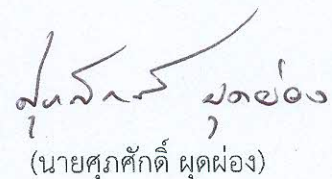 ศุภศักดิ์ ผุดผ่อง
(นายศุภศักดิ์ ผุดผ่อง)